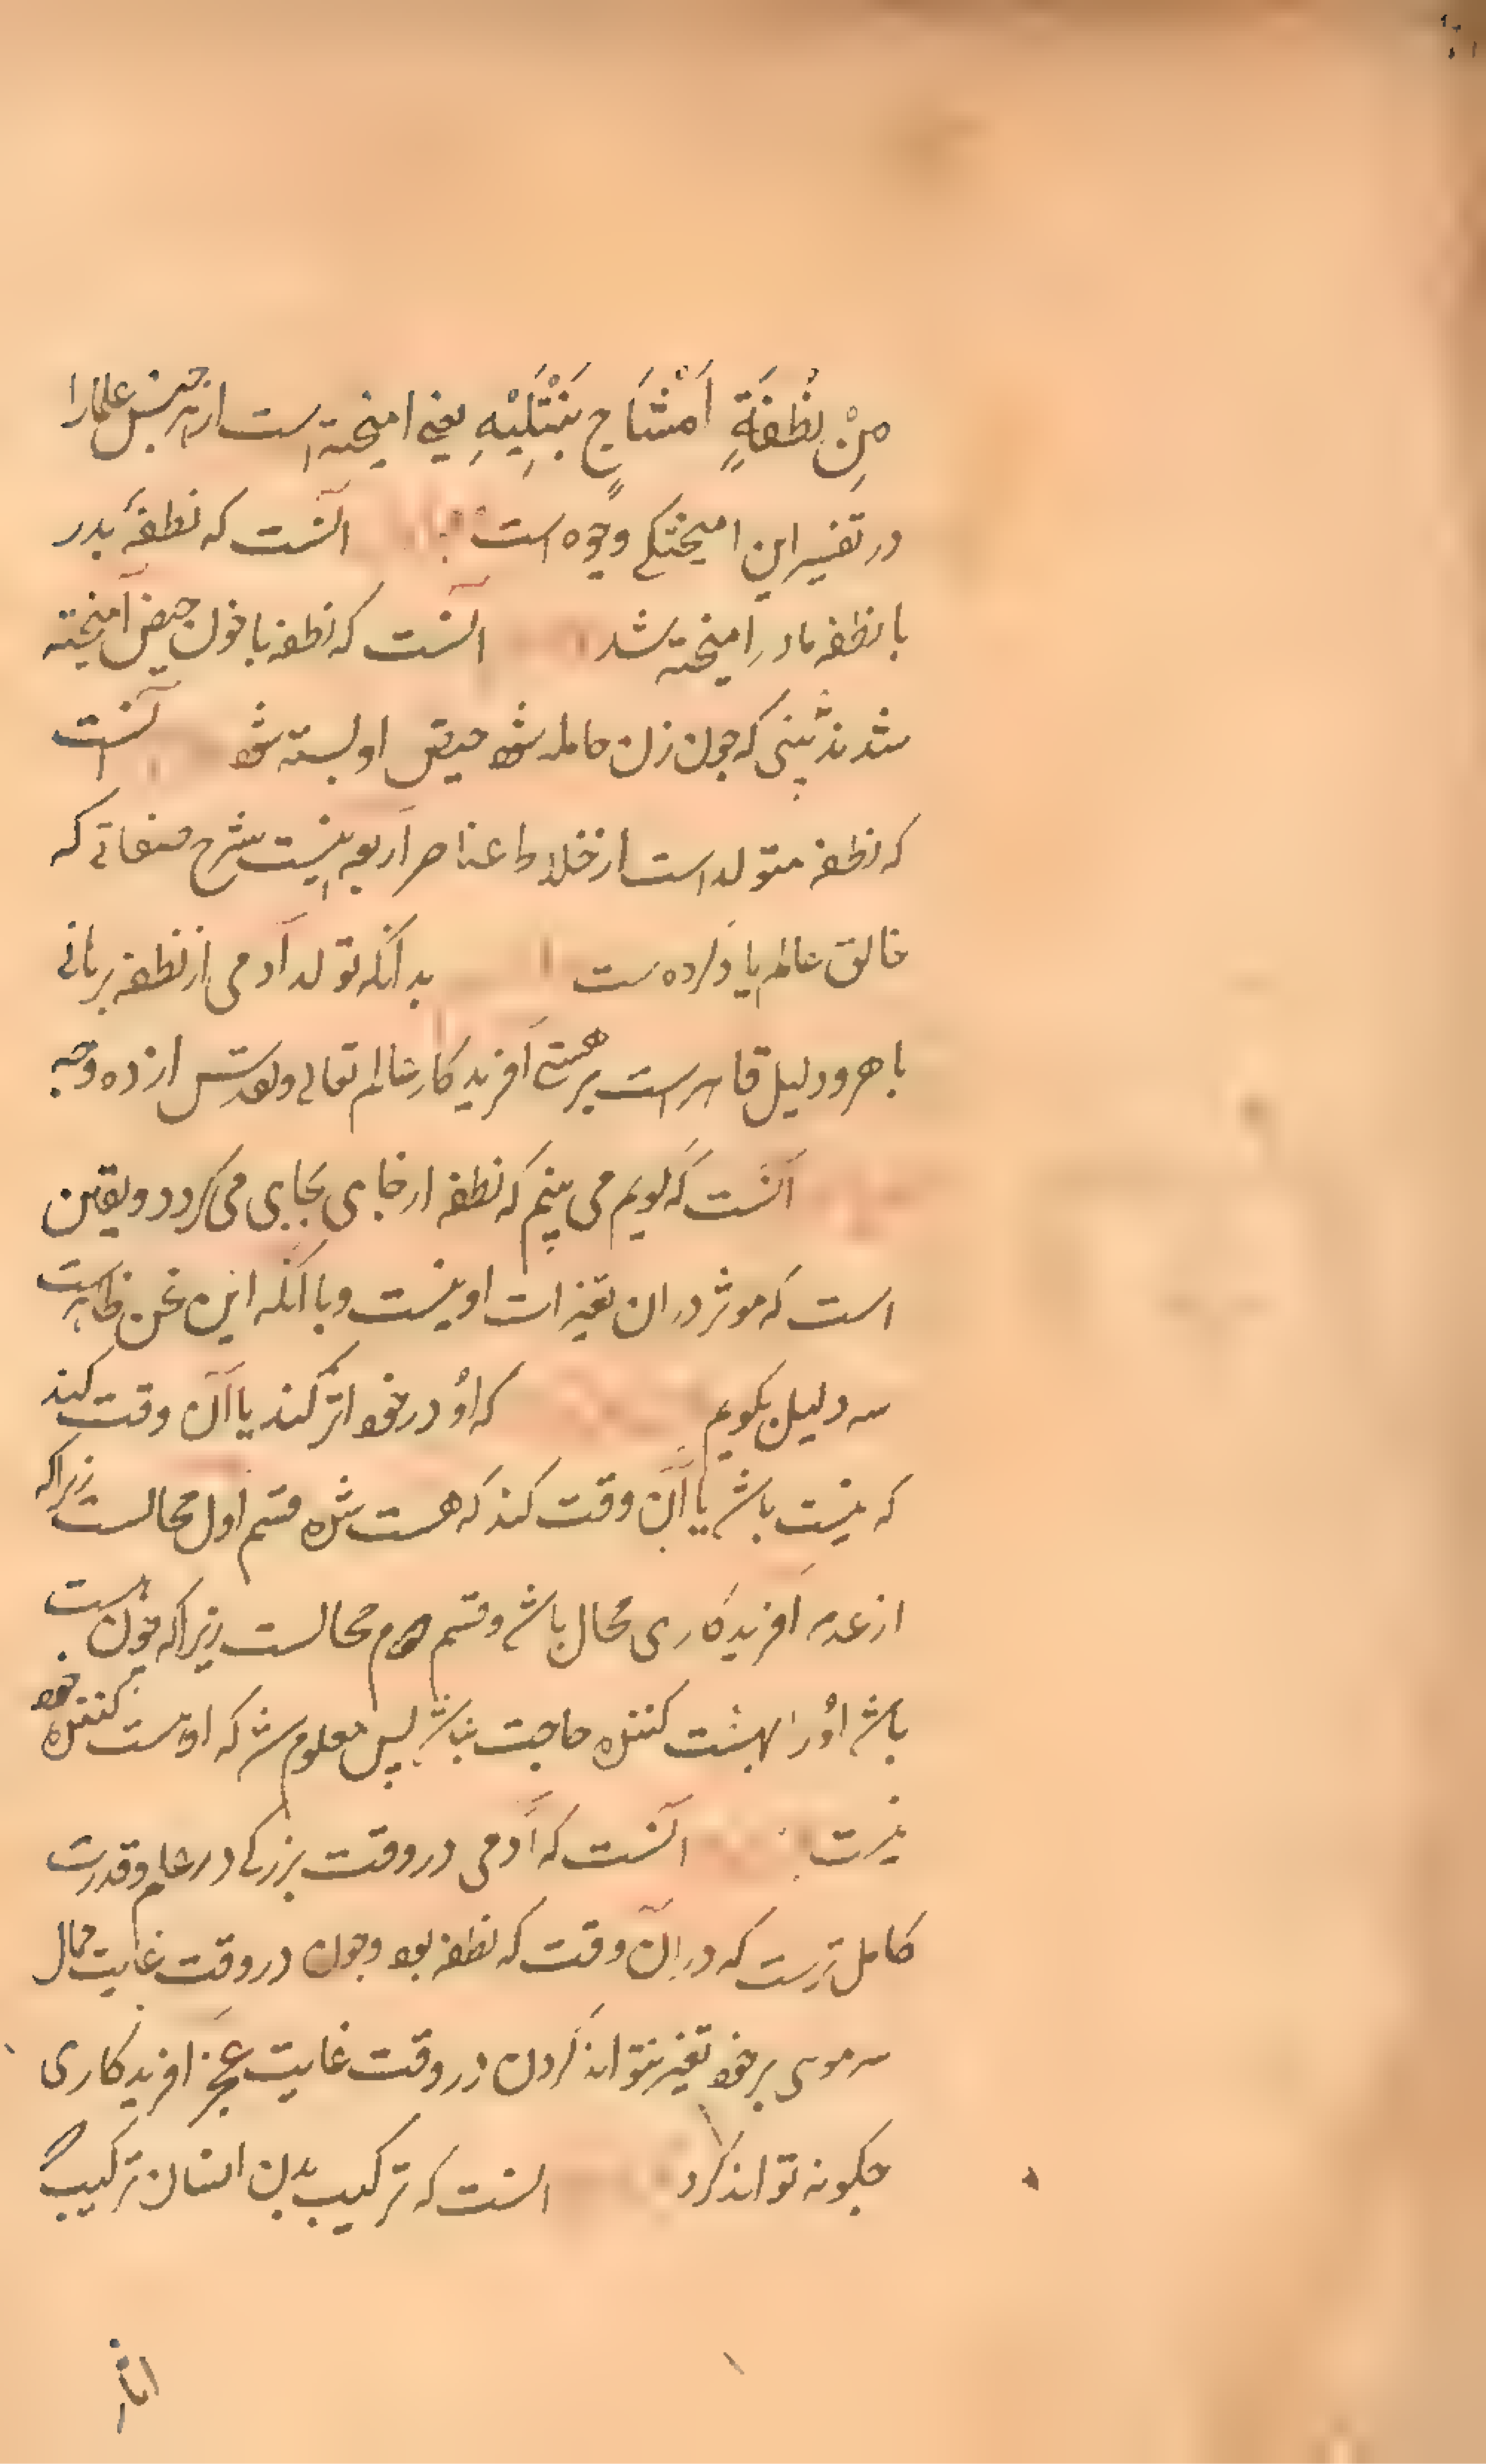 مِنْ نُطْفَةٍ اَمْشَاجٍ نَبْتَلِيْهِ یعنی امیخته است از هر جنس علما را
در تفسیر این امیختکی وجوه است آنست که نطفهٔ بدر
با نطفه مادر امیخته شد آنست که نطفه با خون حیض آمیخته
شد نه بینی که جون زن حامله شود حیض او بسته شود آنست
که نطفه متولد است از خلاط عناصر اربعه اینست شرح صفاتی که
خالق عالم یاد کرده ست بدانکه تولد آدمی از نطفه برهانی
باهر و دلیل قاهر است بر هستی آفریدکار عالم تعالی و تقدس از ده وجه
آنست که کویم می بینم که نطفه از جای بجایی می کردد و یقین
است که موثر در ان تغیرات او نیست و با آنکه این سخن ظاهرست
سه دلیل بکویم که اوُ در خود اثر کند یا آن وقت کند
که نیست باشد یا آن وقت کند که هست شده قسم اول محالست زیرا که
از عدم آفریدکاری محال باشد و قسم دوم محالست زیرا که جون هست
باشد اوُ را بهست کننده حاجت نباشد پس معلوم شد که او هست کننده خود
نیست آنست که آدمی در وقت بزرکی در علم و قدرت
کامل ترست که در آن وقت که نطفه بود و جون در وقت غایت کمال
سر موی بر خود تغیر نتواند کردن در وقت غایت عجز افریدکاری
جکونه تواند کرد آنست که ترکیب بدن انسان ترکیب